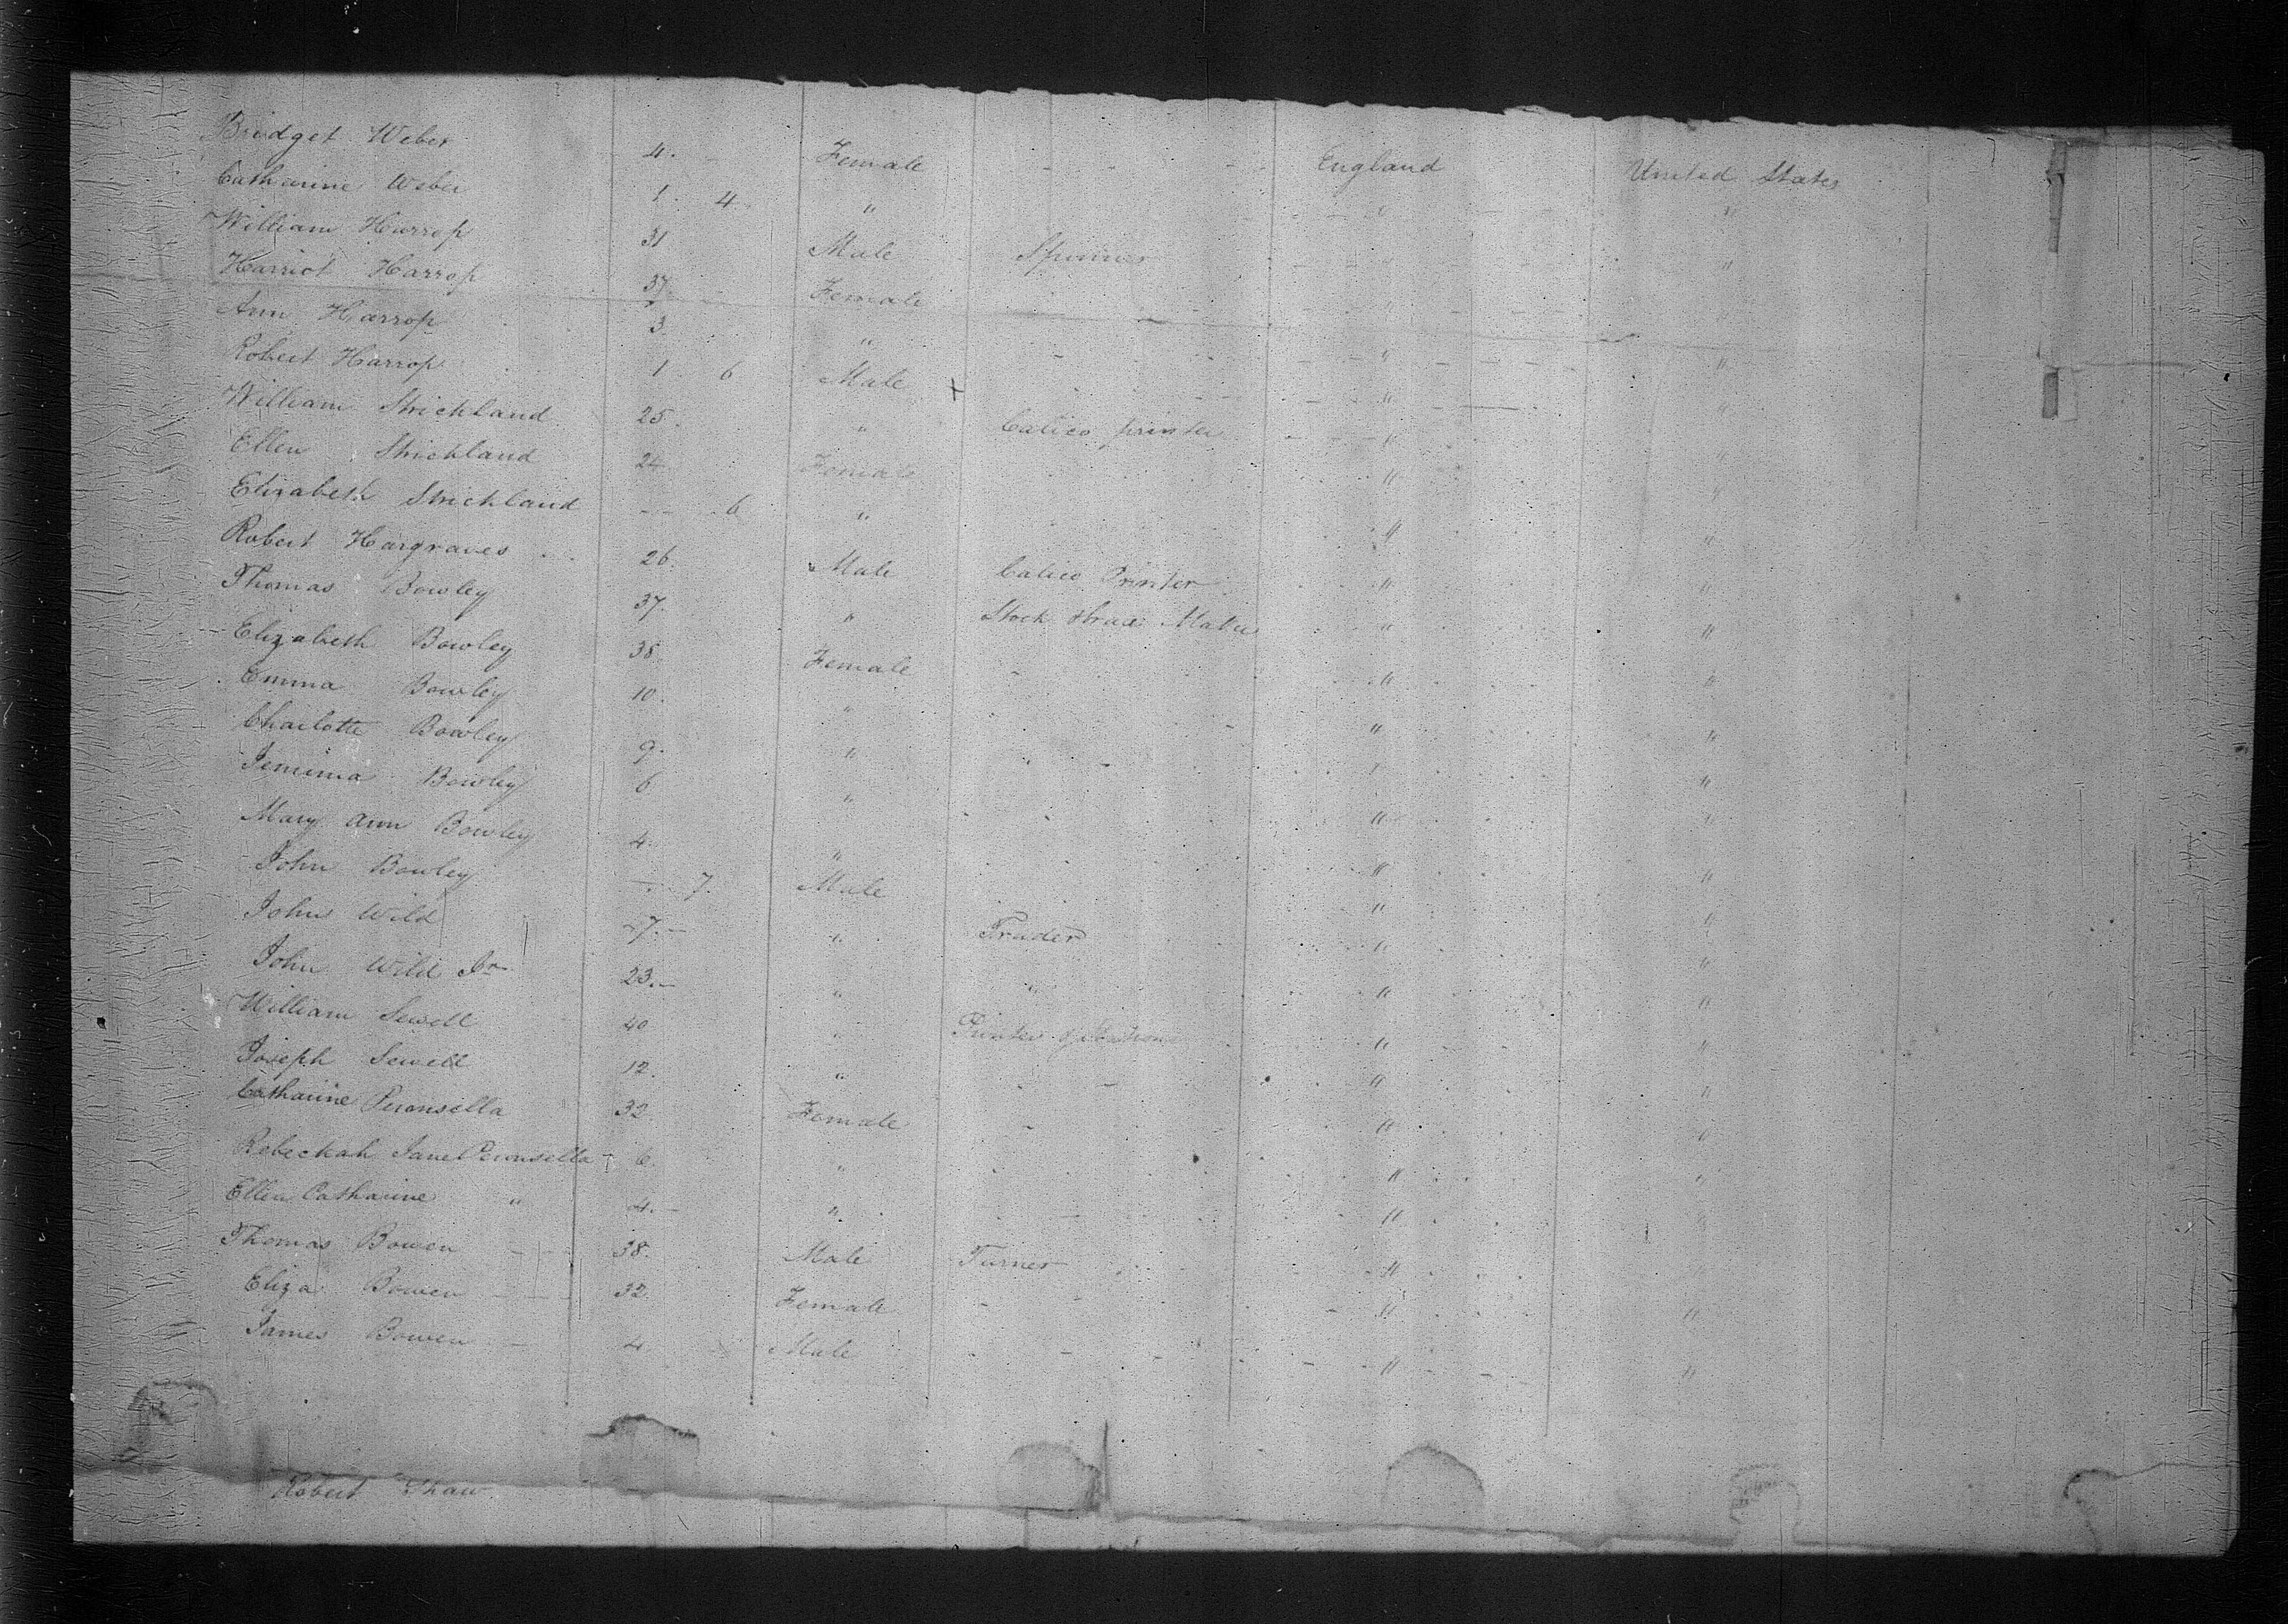 Bridget Weber 4. - Female - - - England United States
Catharine Weber 1. 4. " - - " - - "
William Harrop 31 Male Spinner - - " "
Harriot Harrop 37. - Female - - " - - "
Ann Harrop 3. " - - - " - - "
Robert Harrop 1. 6 Male - - - " - - "
William Strickland 25. " Calico printer - - " "
Ellen Strickland 24 Female " "
Elizabeth Strickland - - 6 " " "
Robert Hargraves 26. Male Calico Printer " "
Thomas Bowley 37. " Stock Maker " "
Elizabeth Bowley 38. Female - " "
Emma Bowley 10. " - " "
Charlotte Bowley 9. " - " "
Jemima Bowley 6 " - " "
Mary Ann Bowley 4. " - " "
John Bowley - 7. Male " "
John Wild Trader " "
John Wild Jr 23. - " " " "
William Sewell 40 " " "
Joseph Sewell 12. " - - " "
Catharine 32 Female - " "
Rebeckah Jane 6. " - " "
Ellen Catharine " 4. - " - " "
Thomas Bowen - - 38. Male Turner " "
Eliza Bowen - - - 32. Female - - - " "
James Bowen - 4 Male - - - " - "
Robert Shaw